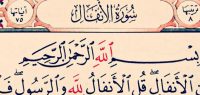 ترتيبها ٨
سُورَةُ الأَنفَالِ
آياتها ٧٥
بِسْمِ اللَّهِ الرَّحْمَٰنِ الرَّحِيمِ
الْأَنفَالِ ۖ قُلِ الْأَنفَالُ لِلَّهِ وَالرَّسُولِ ۖ